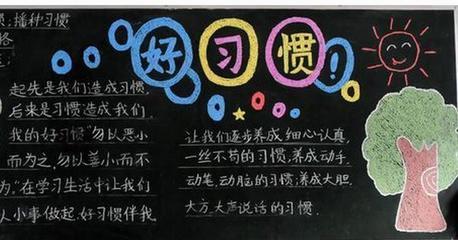 播种习惯
好习惯!
起先是我们造成习惯,
后来是习惯造成我们.
我的好习惯"勿以恶小
而为之,勿以善小而不
为"在学习生活中让我们
人小事做起.好习惯伴我
让我们逐步养成,细心认真,
一丝不苟的习惯;养成动手.
动笔,动脑的习惯;养成大胆.
大方.大声说话的习惯.